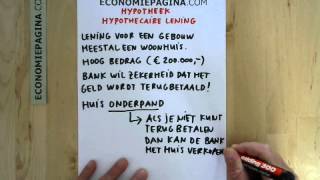 ECONOMIEPAGINA.COM
HYPOTHEEK
HYPOTHECAIRE LENING
LENING VOOR EEN GEBOUW
MEESTAL EEN WOONHUIS.
HOOG BEDRAG (€ 200.000,-)
BANK WIL ZEKERHEID DAT HET
GELD WORDT TERUGBETAALD!
HUIS ONDERPAND
ALS JE NIET KUNT
TERUG BETALEN
DAN KAN DE BANK
HET HUIS VERKOPEN
ECONOMIEPAGINA.COM
edding 300